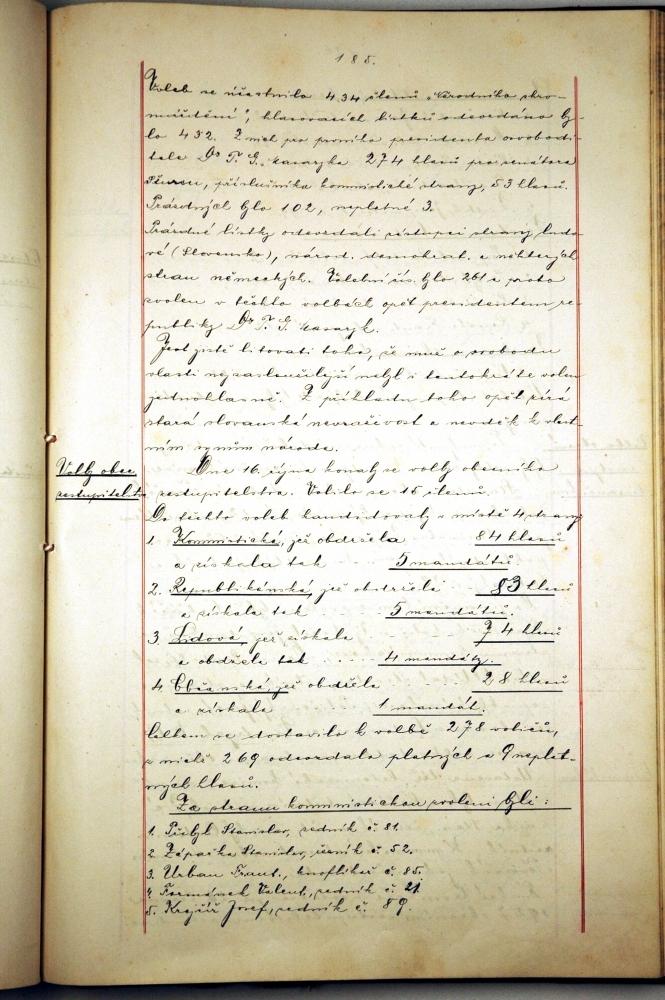 185.
Voleb se účastnilo 434 členů „Národního shro-
máždění“, hlasovacích lístků odevzdáno by-
lo 432. Z nich pro prvního presidenta osvobodi-
tele Dr T. G. Masaryka 274 hlasů pro senátora
Šturce, příslušníka kommistické strany, 53 hlasů.
Prázdných bylo 102, neplatné 3.
Prázdné lístky odevzdali zástupci strany ludo-
vé (Slovensko), národ. demokrat. a některých
stran německých. Volební čís. bylo 261 a proto
zvolen v těchto volbách opět presidentem re-
publiky Dr T. G. Masaryk.
Jest jistě litovati toho, že muž o svobodu
vlasti nejzasloužilejší nebyl i tentokráte volen
jednohlasně. Z příkladu toho opět zírá
stará slovanská nevraživost a nevděk k vlast-
ním synům národa.
Volby obec.
zastupitelst.
Dne 16. října konaly se volby obecního
zastupitelstva. Volilo se 15 členů.
Do těchto voleb kandidovaly v místě 4 strany
1. Kommistická, jež obdržela 84 hlasů
a získala tak 5 mandátů.
2. Republikánská, jež obdržela 83 hlasů
a získala tak 5 mandátů.
3. Lidová jež získala 74 hlasů
a obdržela tak 4 mandáty.
4. Občanská, jež obdržela 28 hlasů
a získala 1 mandát.
Celkem se dostavilo k volbě 278 voličů,
z nichž 269 odevzdalo platných a 9 neplat-
ných hlasů.
Za stranu kommistickou zvoleni byli:
1. Přibyl Stanislav, zedník č. 81.
2. Zápařka Stanislav, č. 52.
3. Urban Frant., knoflíkář č. 85.
4. Formánek Valent., zedník č. 21
5. Krejčíř Josef, zedník č. 89.